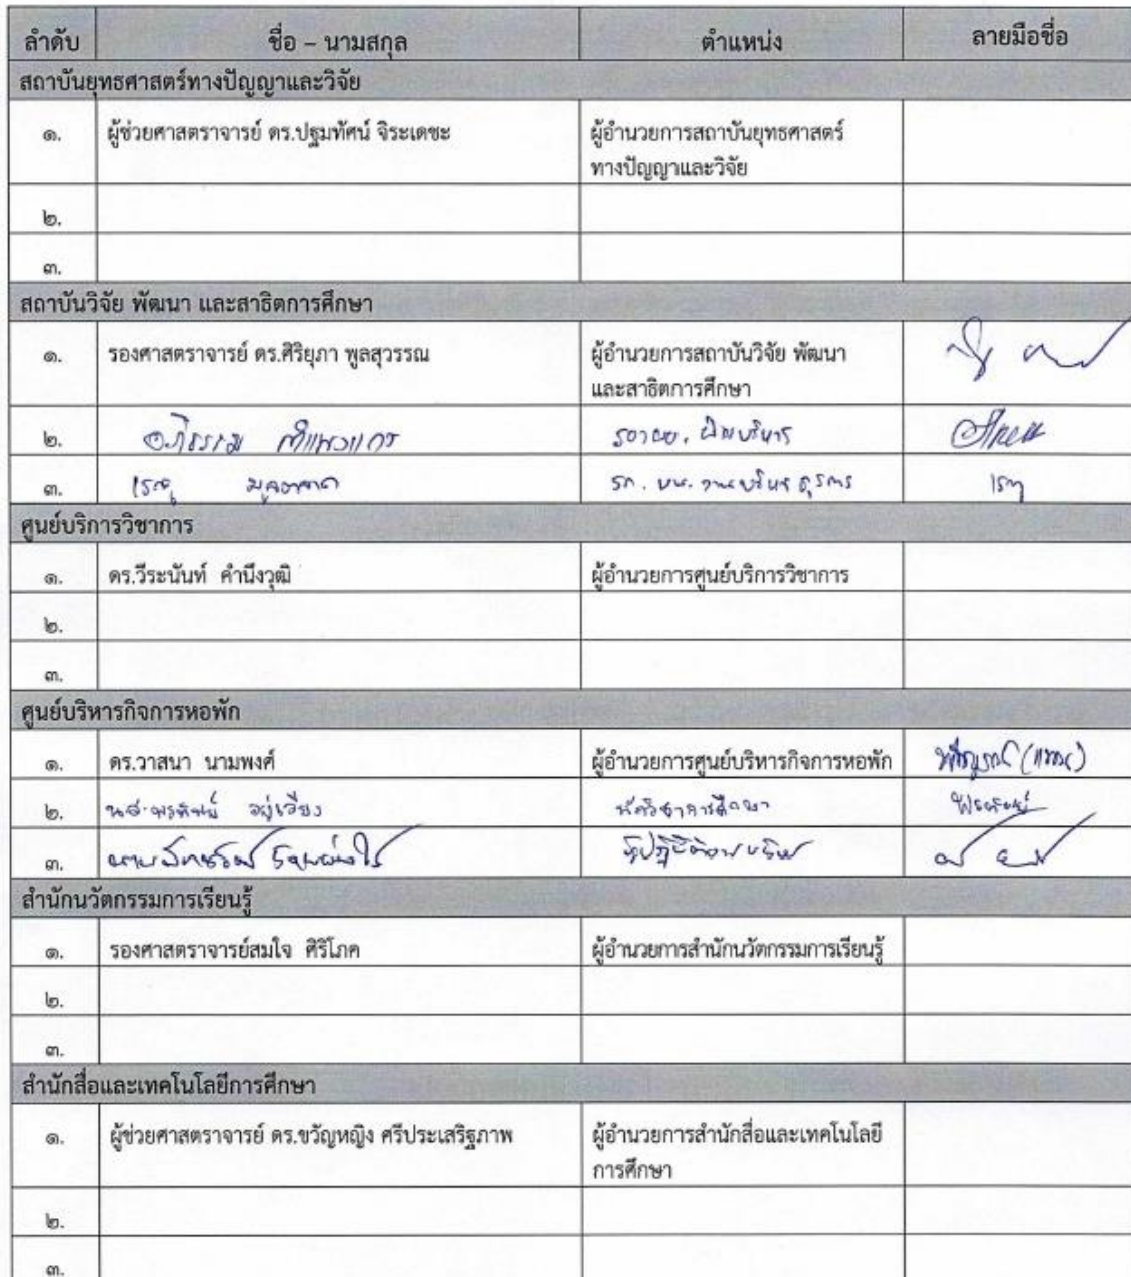 ลำดับ ชื่อ – นามสกุล ตำแหน่ง ลายมือชื่อ
สถาบันยุทธศาสตร์ทางปัญญาและวิจัย
๑. ผู้ช่วยศาสตราจารย์ ดร.ปฐมทัศน์ จิระเดชะ ผู้อำนวยการสถาบันยุทธศาสตร์
ทางปัญญาและวิจัย
๒.
๓.
สถาบันวิจัย พัฒนา และสาธิตการศึกษา
๑. รองศาสตราจารย์ ดร.ศิริยุภา พูลสุวรรณ ผู้อำนวยการสถาบันวิจัย พัฒนา
และสาธิตการศึกษา
๒.
๓.
ศูนย์บริการวิชาการ
๑. ดร.วีระนันท์ คำนึงวุฒิ ผู้อำนวยการศูนย์บริการวิชาการ
๒.
๓.
ศูนย์บริหารกิจการหอพัก
๑. ดร.วาสนา นามพงศ์ ผู้อำนวยการศูนย์บริหารกิจการหอพัก (แทน)
๒. นักวิชาการศึกษา
๓.
สำนักนวัตกรรมการเรียนรู้
๑. รองศาสตราจารย์สมใจ ศิริโภค ผู้อำนวยการสำนักนวัตกรรมการเรียนรู้
๒.
๓.
สำนักสื่อและเทคโนโลยีการศึกษา
๑. ผู้ช่วยศาสตราจารย์ ดร.ขวัญหญิง ศรีประเสริฐภาพ ผู้อำนวยการสำนักสื่อและเทคโนโลยี
การศึกษา
๒.
๓.